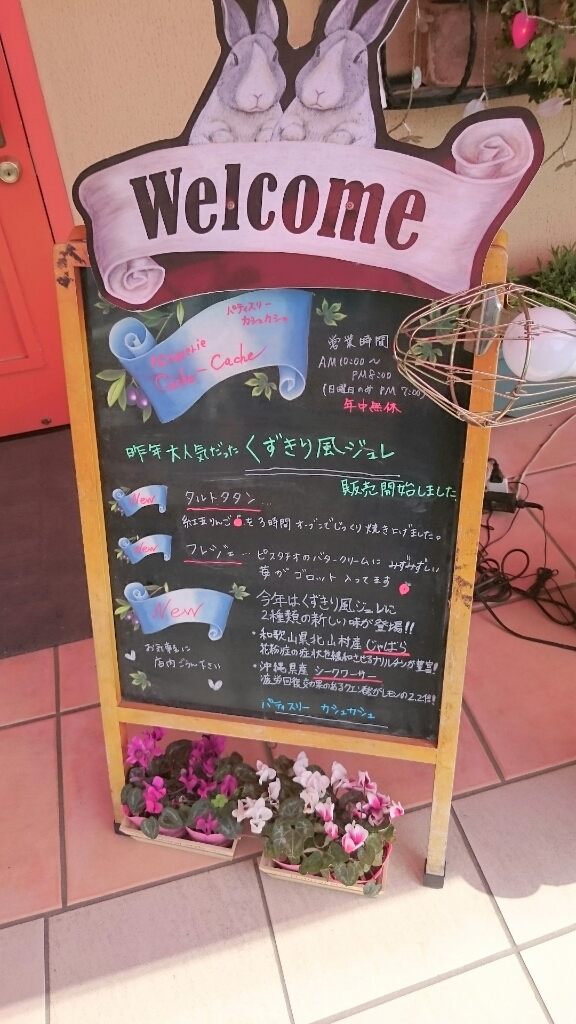 Welcome
パティスリー
カシュカシュ
Patisserie
Cache-Cache
営業時間
AM10:00〜
PM8:00
(日曜日のみPM 7:00)
年中無休
昨年大人気だった くずきり風ジュレ
販売開始しました
New
タルトタタン…
紅玉りんごを3時間オーブンでじっくり焼き上げました。
New
フレジェ…ピスタチオのバタークリームに みずみずしい
苺がゴロット入ってます
New
今年はくずきり風ジュレに
2種類の新しい味が登場!!
・和歌山県北山村産 じゃばら
花粉症の症状を緩和させるナリルチンが豊富!
・沖縄県産 シークワーサー
疲労回復効果のあるクエン酸がレモンの2.2倍!
お気軽に
店内ごらん下さい
パティスリー カシュカシュ